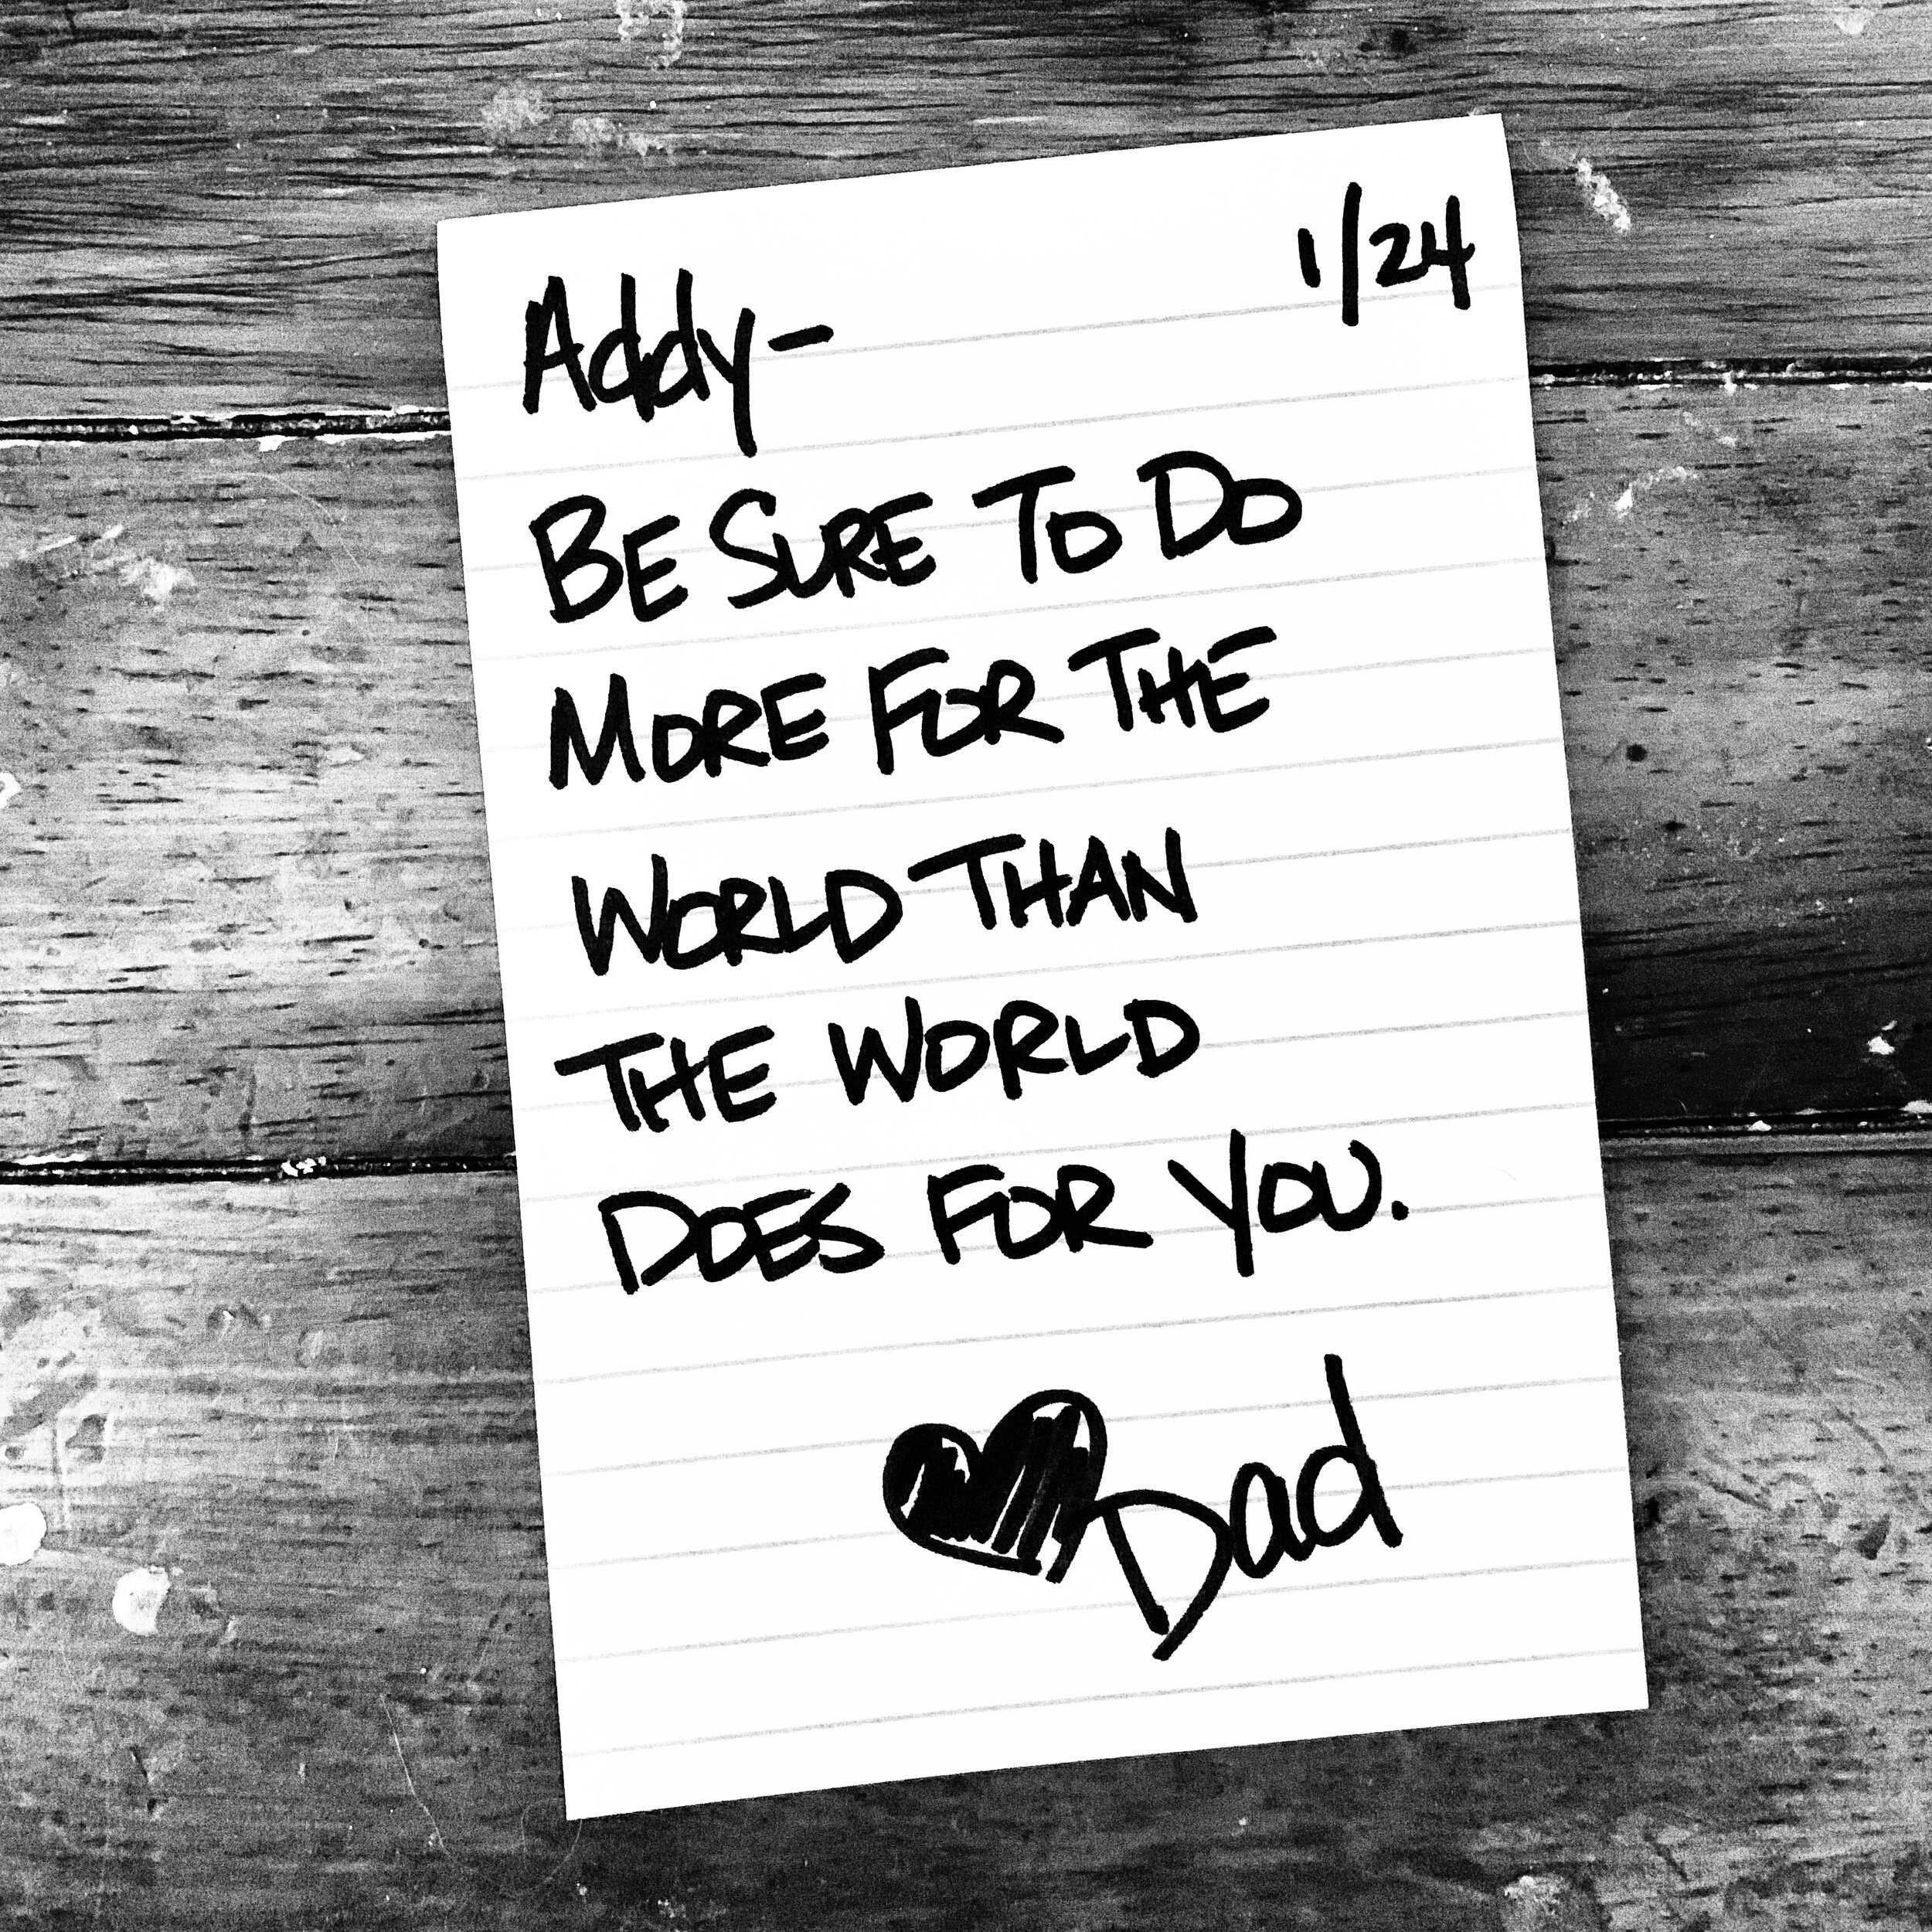 1/24
Addy-
BE SURE TO DO
MORE FOR THE
WORLD THAN
THE WORLD
DOES FOR YOU.
Dad